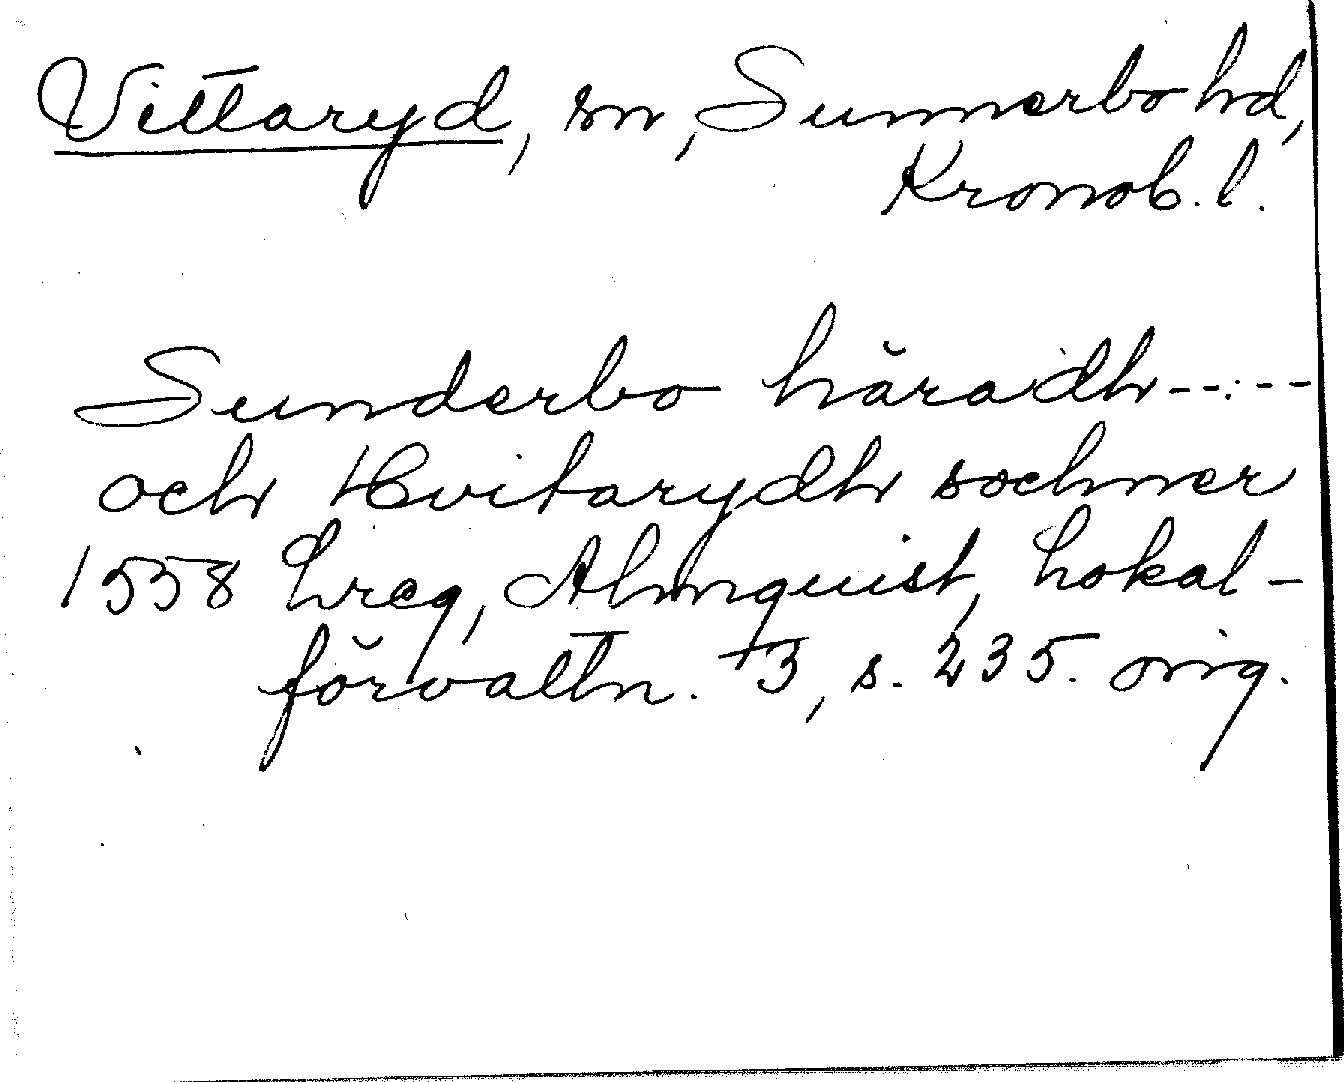 Vittaryd, sn, Sunnerbo hd,
Kronob. l.
Sunderbo häradh -----
och Hvitarydh sochner
1558 Lreg, Almquist, Lokal-
förvaltn. 3, s. 235. orig.